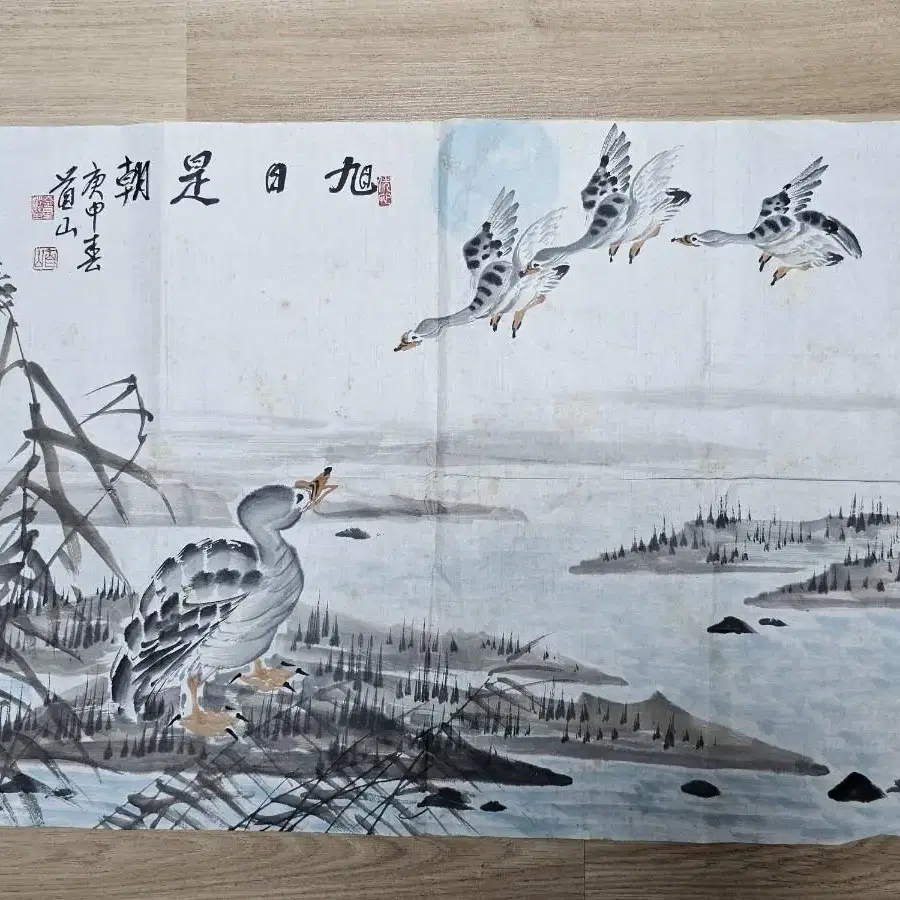 旭日是朝
庚申春
首山